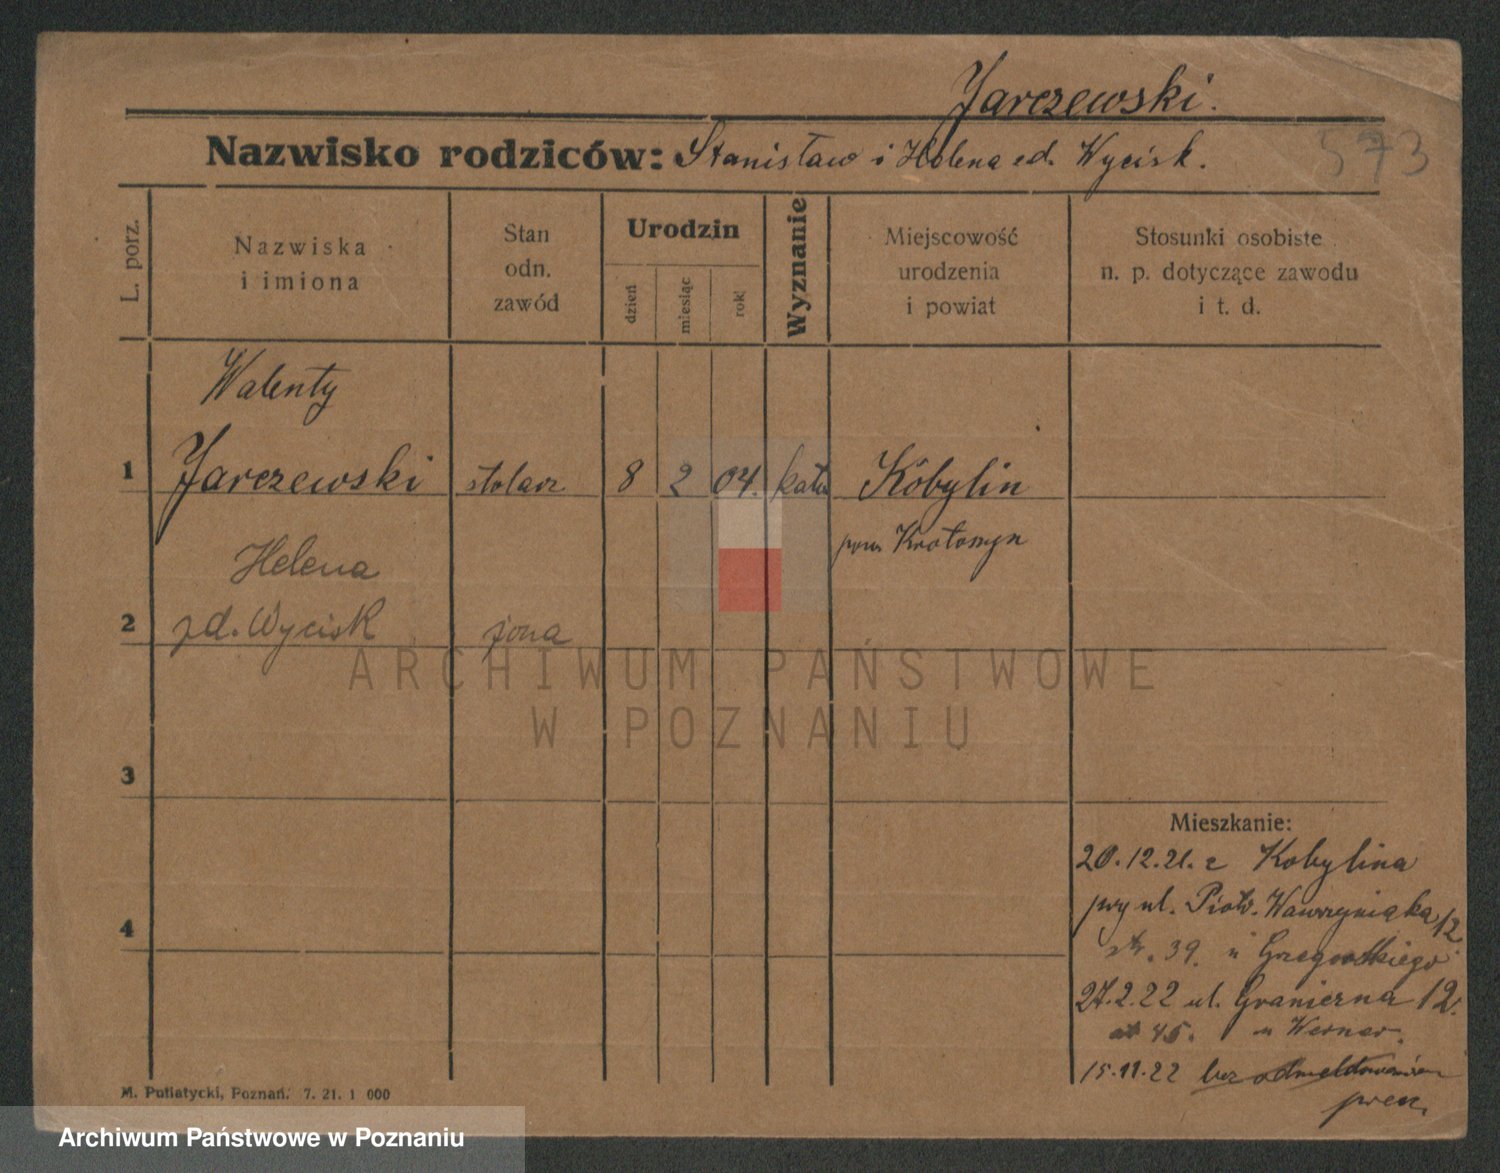 Jarczewski.
573
Nazwisko rodziców: Stanisław i Helena zd. Wycisk.
L. porz.
Nazwiska
i imiona
Stan
odn.
zawód
Urodzin
dzień
miesiąc
rok
Wyznanie
Miejscowość
urodzenia
i powiat
Stosunki osobiste
n. p. dotyczące zawodu
i t. d.
Walenty
1 Jarczewski stolarz 8 2 04. kat. Kobylin
pow Krotoszyn
Helena
2 zd. Wycisk żona
ARCHIWUM PAŃSTWOWE
W POZNANIU
3
Mieszkanie:
20.12.21. z Kobylina
przy ul. Piotr. Wawrzyniaka 12
4
39. u
27.2.22 ul. Granierna 12.
45. u Werner.
15.11.22 bez odmeldowania
M. Putiatycki, Poznań. 7. 21. 1 000
Archiwum Państwowe w Poznaniu